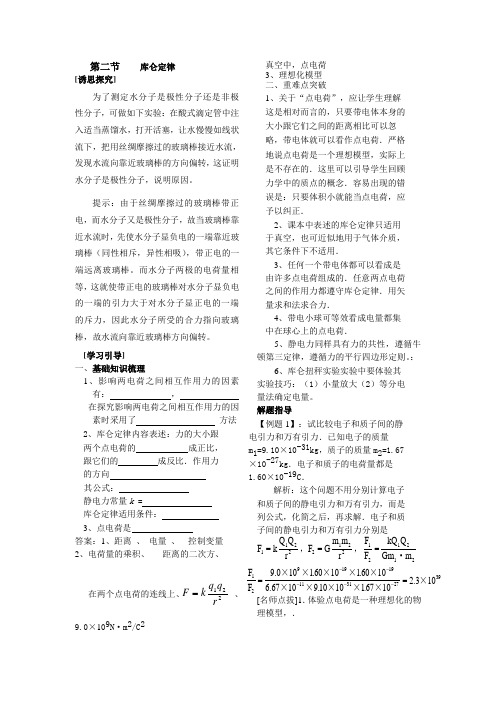 第二节 库仑定律
[诱思探究]
为了测定水分子是极性分子还是非极
性分子，可做如下实验：在酸式滴定管中注
入适当蒸馏水，打开活塞，让水慢慢如线状
流下，把用丝绸摩擦过的玻璃棒接近水流，
发现水流向靠近玻璃棒的方向偏转，这证明
水分子是极性分子，说明原因。
提示：由于丝绸摩擦过的玻璃棒带正
电，而水分子又是极性分子，故当玻璃棒靠
近水流时，先使水分子显负电的一端靠近玻
璃棒（同性相斥，异性相吸），带正电的一
端远离玻璃棒。而水分子两极的电荷量相
等，这就使带正电的玻璃棒对水分子显负电
的一端的引力大于对水分子显正电的一端
的斥力，因此水分子所受的合力指向玻璃
棒，故水流向靠近玻璃棒方向偏转。
[学习引导]
一、基础知识梳理
1、影响两电荷之间相互作用力的因素
有： ，
在探究影响两电荷之间相互作用力的因
素时采用了 方法
2、库仑定律内容表述：力的大小跟
两个点电荷的 成正比，
跟它们的 成反比．作用力
的方向
其公式：
静电力常量 k =
库仑定律适用条件：
3、点电荷是
答案：1、距离 、 电量 、 控制变量
2、电荷量的乘积、 距离的二次方、
在两个点电荷的连线上、F = k q₁q₂/r² 、
9.0×10⁹N·m²/C²
真空中，点电荷
3、理想化模型
二、重难点突破
1、关于“点电荷”，应让学生理解
这是相对而言的，只要带电体本身的
大小跟它们之间的距离相比可以忽
略，带电体就可以看作点电荷．严格
地说点电荷是一个理想模型，实际上
是不存在的．这里可以引导学生回顾
力学中的质点的概念．容易出现的错
误是：只要体积小就能当点电荷，应
予以纠正．
2、课本中表述的库仑定律只适用
于真空，也可近似地用于气体介质，
其它条件下不适用．
3、任何一个带电体都可以看成是
由许多点电荷组成的．任意两点电荷
之间的作用力都遵守库仑定律．用矢
量求和法求合力．
4、带电小球可等效看成电量都集
中在球心上的点电荷．
5、静电力同样具有力的共性，遵循牛
顿第三定律，遵循力的平行四边形定则。：
6、库仑扭秤实验实验中要体验其
实验技巧：（1）小量放大（2）等分电
量法确定电量。
解题指导
【例题1】：试比较电子和质子间的静
电引力和万有引力．已知电子的质量
m₁=9.10×10⁻³¹kg，质子的质量m₂=1.67
×10⁻²⁷kg．电子和质子的电荷量都是
1.60×10⁻¹⁹C．
解析：这个问题不用分别计算电子
和质子间的静电引力和万有引力，而是
列公式，化简之后，再求解．电子和质
子间的静电引力和万有引力分别是
F₁ = k Q₁Q₂/r²，F₂ = G m₁m₂/r²，F₁/F₂ = kQ₁Q₂/Gm₁·m₂
F₁/F₂ = 9.0×10⁹×1.60×10⁻¹⁹×1.60×10⁻¹⁹/6.67×10⁻¹¹×9.10×10⁻³¹×1.67×10⁻²⁷ = 2.3×10³⁹
[名师点拔]1．体验点电荷是一种理想化的物
理模型，．